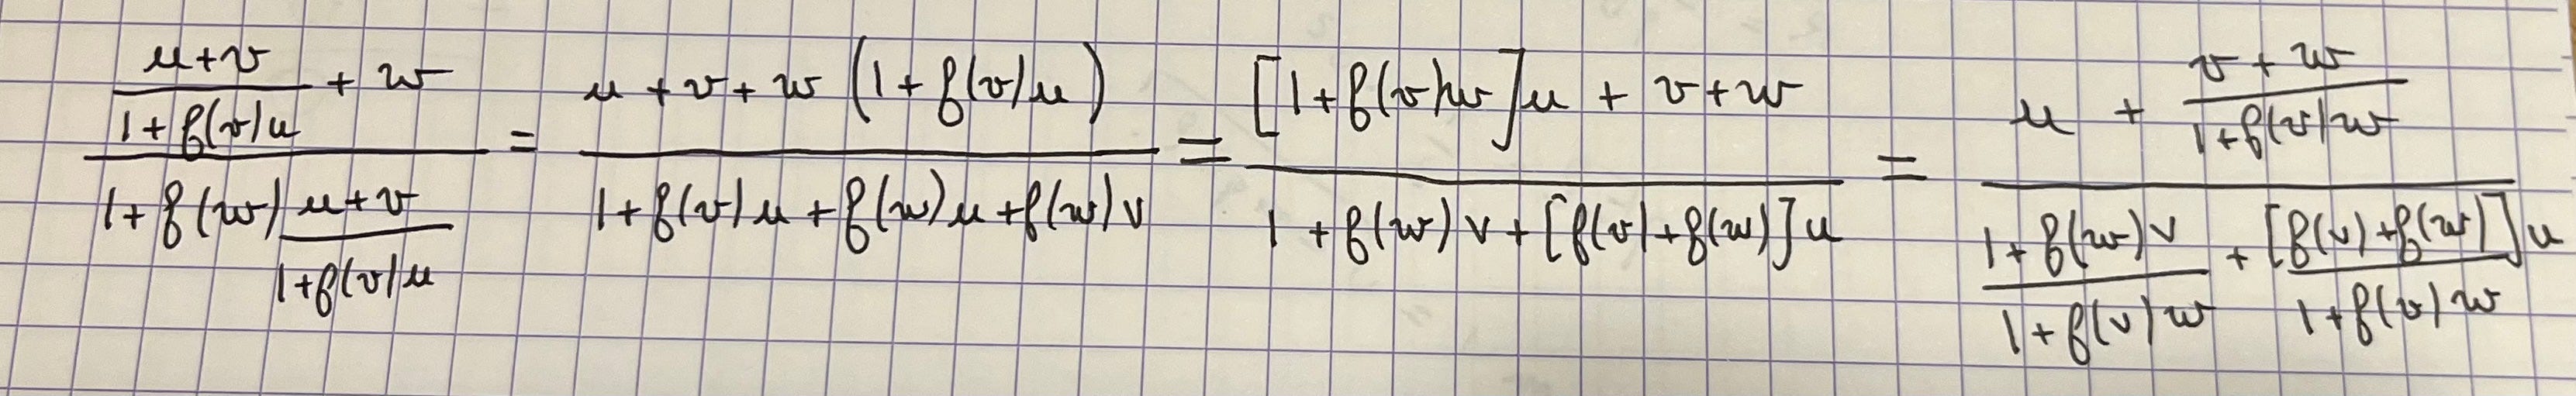 \frac{\frac{u+v}{1+f(v)u}+w}{1+f(w)\frac{u+v}{1+f(v)u}} = \frac{u+v+w(1+f(v)u)}{1+f(v)u+f(w)u+f(w)v} = \frac{[1+f(v)w]u+v+w}{1+f(w)v+[f(v)+f(w)]u} = \frac{u+\frac{v+w}{1+f(v)w}}{\frac{1+f(w)v}{1+f(v)w}+\frac{[f(v)+f(w)]u}{1+f(v)w}}